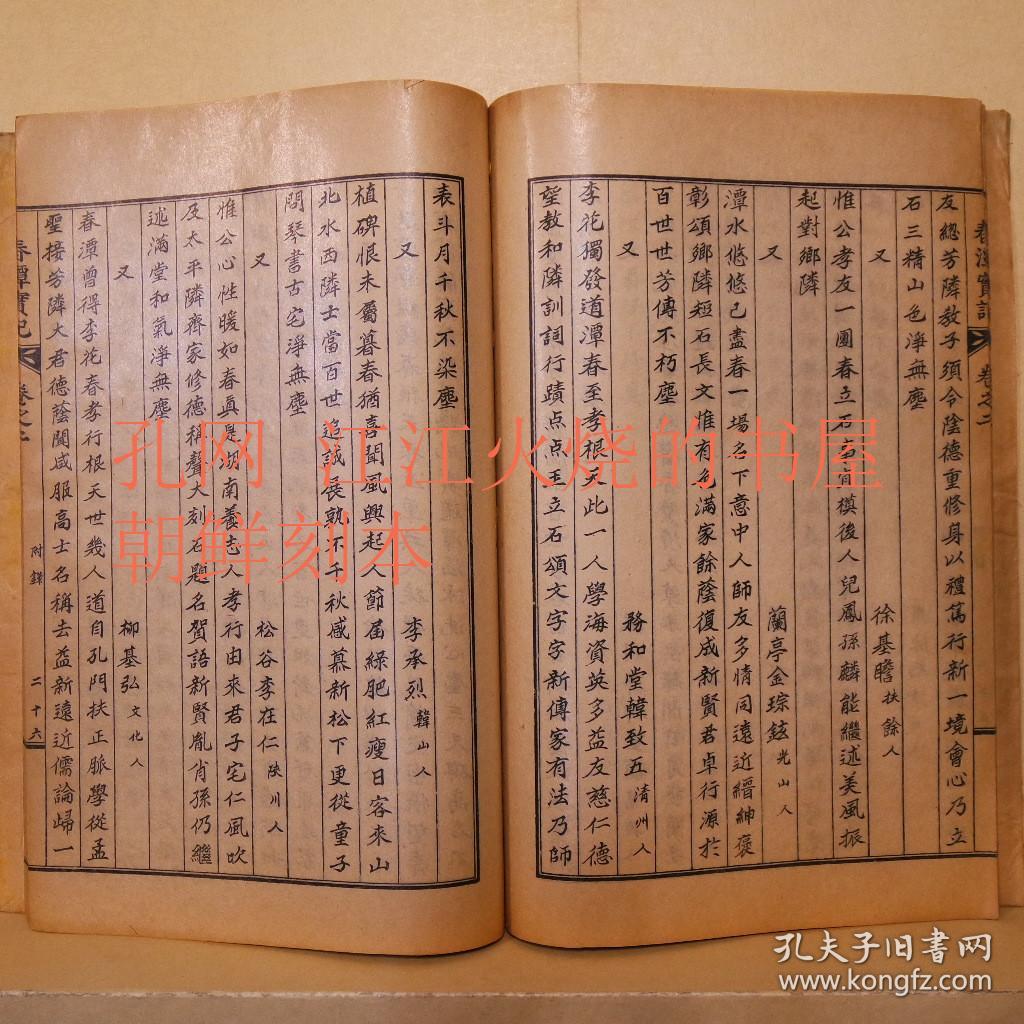 友總芳隣敎子須令陰德重修身以禮篤行新一境會心乃立
石三精山色淨無塵
又 徐基瞻 扶餘人
惟公孝友一團春立石南宜模後人兒鳳孫麟能繼述美風振
起對鄉隣
又 蘭亭金琮鉉 光山人
潭水悠悠已盡春一場名下意中人師友多情同遠近縉紳褒
彰頌鄉隣短石長文惟有色滿家餘蔭復成新賢君卓行源於
百世世芳傳不朽塵
又 務和堂韓致五 清州人
李花獨發道潭春至孝根天此一人學海資英多益友慈仁德
望教和隣訓詞行蹟点点玉立石頌文字字新傳家有法乃師
表斗月千秋不染塵
又 李承烈 韓山人
植碑恨未屬暮春猶喜聞風興起人節屆綠肥紅瘦日客來山
北水西隣士當百世追誠展孰不千秋感慕新松下更從童子
問琴書古宅淨無塵
又 松谷李在仁 陜川人
惟公心性暖如春眞是湖南養志人孝行由來君子宅仁風吹
及太平隣齊家修德稱聲大刻石題名賀語新賢胤肖孫仍繼
述滿堂和氣淨無塵
又 柳基弘 文化人
春潭曾得李花春孝行根天世幾人道自孔門扶正脈學從孟
聖接芳隣大君德蔭闔咸服高士名稱去益新遠近儒論歸一
春潭實記 卷之二
春潭實記 卷之二 附錄 二十六
孔网 江江火烧的书屋
朝鲜刻本
孔夫子旧书网
www.kongfz.com